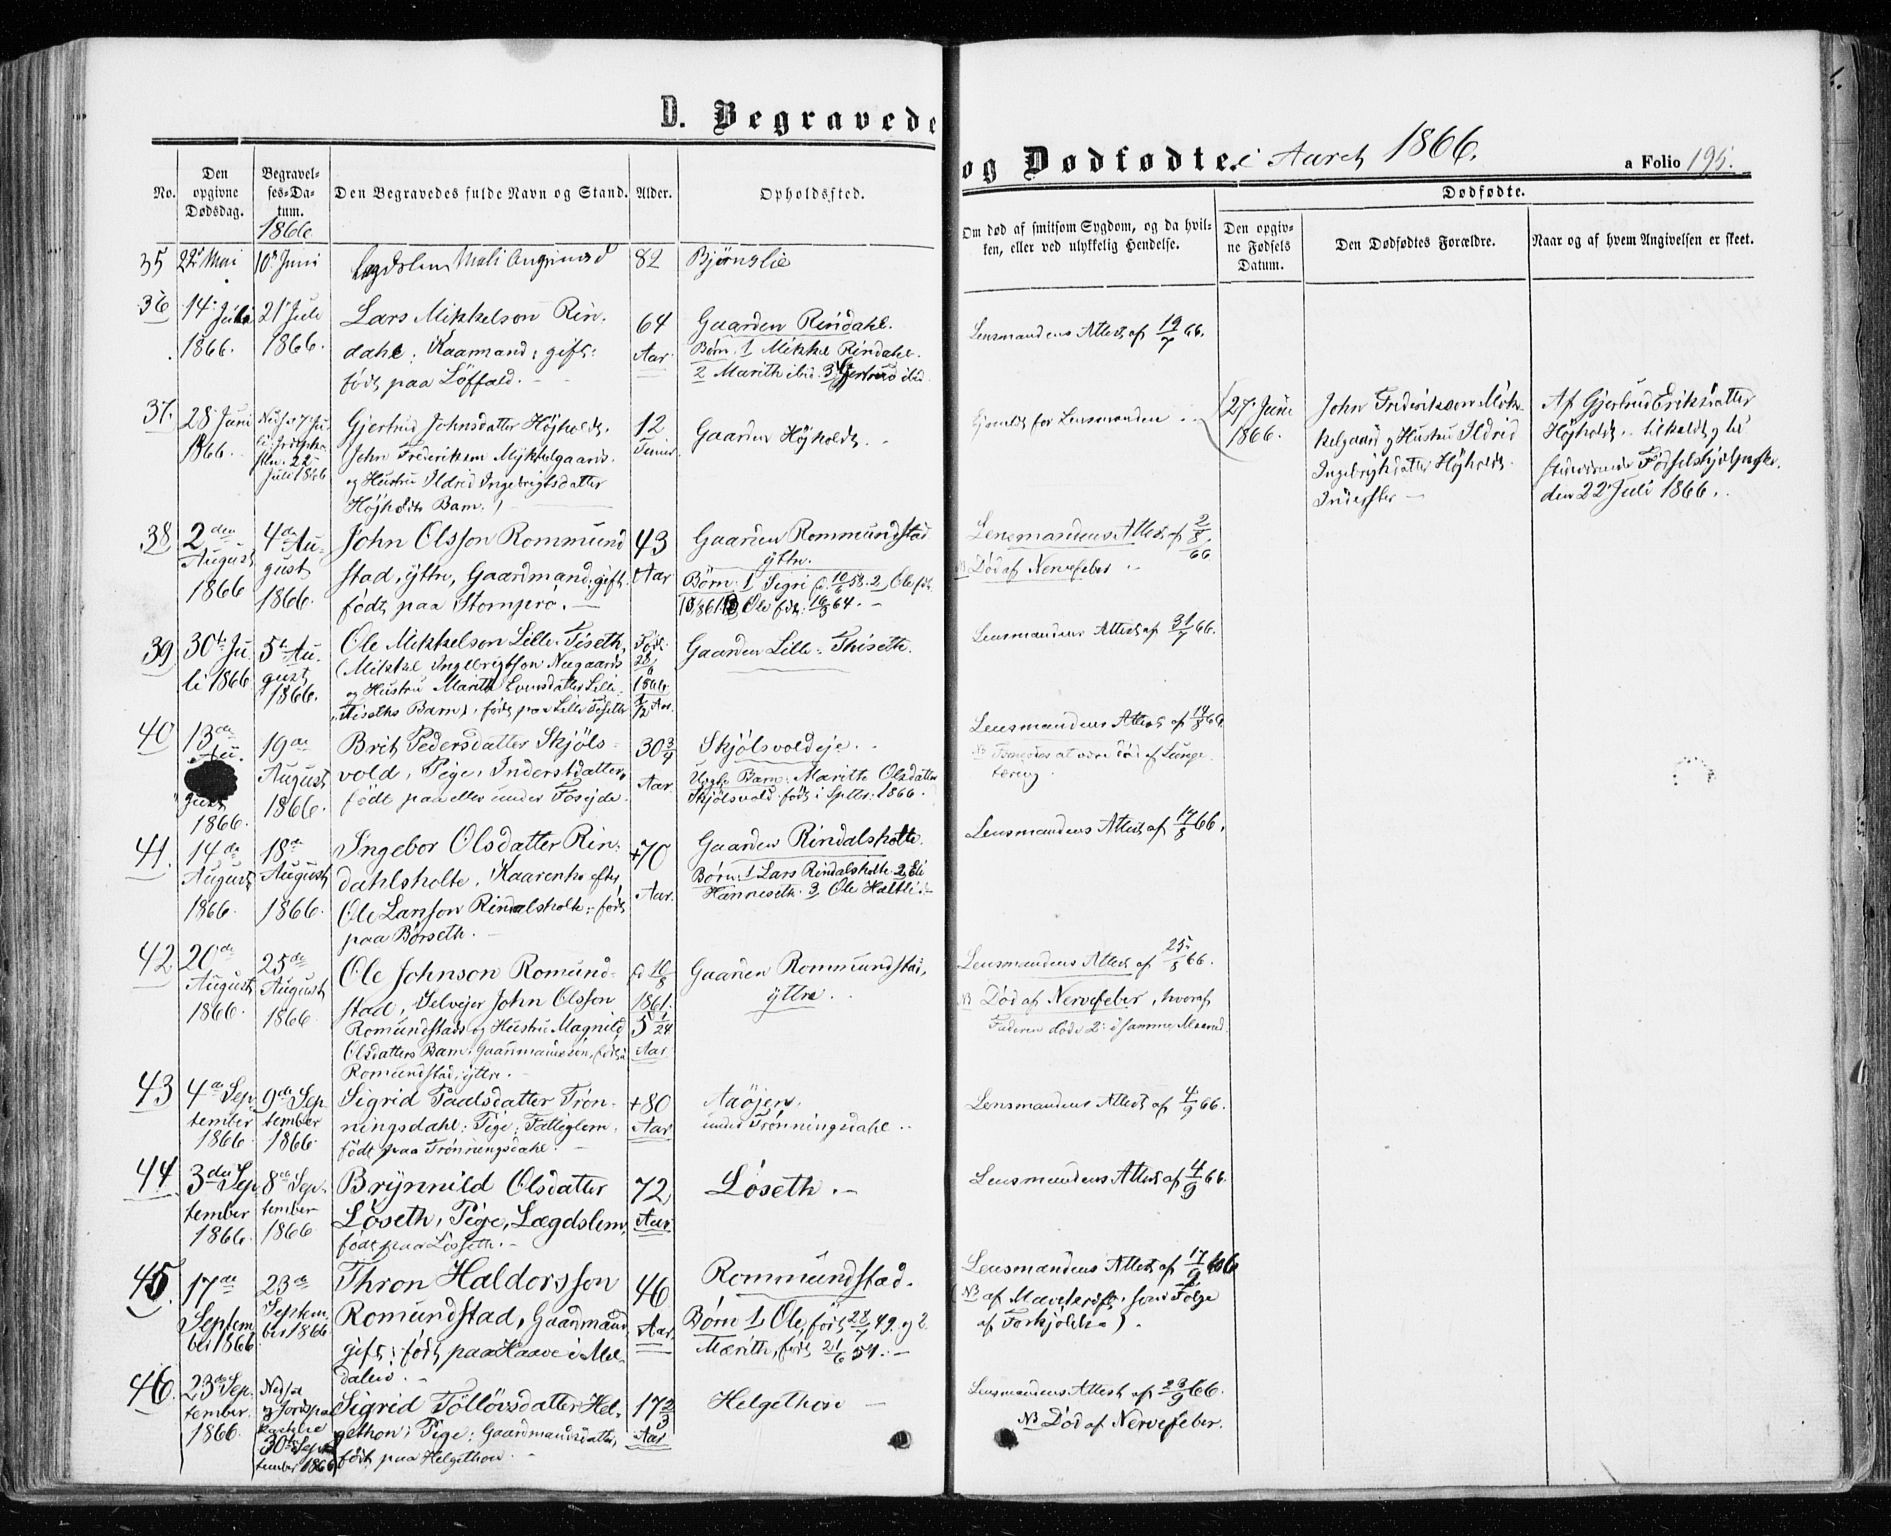 D. Begravede
og Dødfødte. i Aaret 1866.
a Folio 195.
No.
Den opgivne Dødsdag.
Begravelses-Datum. 1866
Den Begravedes fulde Navn og Stand.
Alder.
Opholdssted.
Om død af smitsom Sygdom, og da hvilken, eller ved ulykkelig Hendelse.
Dødfødte.
Den opgivne Fødsels Datum.
Den Dødfødtes Forældre.
Naar og af hvem Angivelsen er skeet.
35 22 Mai 10 Juni Lægdslem Mali 82 Bjørnslie
36 14 Juli 1866. 21 Juli 1866.
Lars Mikkelson Rin-
dahl, Kaarmand, gift.
født paa Løffald.
64 Aar
Gaarden Rindahl.
Børn. 1 Mikkel Rindahl.
2 Marith ibid. 3 Gjertrud ibid.
Lensmandens Attest af 19/7 66.
37. 28 Juni 1866.
Juli 1866
Gjertrud Johnsdatter Højholdt.
John Frederiksen Mikkelgaard
og Hustru Ildrid Ingebrigtsdatter
Højholdts Barn.
12 Timer
Gaarden Højholdt.
for Lensmanden
27 Juni 1866.
John Frederiksen Mik-
kelgaard og Hustru Ildrid
Ingebrigtsdatter Højholdt.
Inderster
Af Gjertrud Eriksdatter
Højholdt. tilkaldt og til
stedeværende Fødselshjelperske.
den 22 Juli 1866.
38 2den August 1866 4de August 1866.
John Olsson Rommund
stad, yttre, Gaardmand, gift.
født paa Stomprø.
43 Aar
Gaarden Rommundstad
yttre.
Børn. 1 Sigri 58. 2 Ole født
1861 3 Ole født 64.
Lensmandens Attest af 2/8 66
NB Død af Nervefeber
39 30te Juli 1866 5te August 1866.
Ole Mikkelson Lille-Tiseth,
(Mikkel Ingebrigtson Nergaards
og Hustru Marith Evensdatter Lille
Tiseths Barn), født paa Lille Tiseth
Født 28/6 1866 1/12 Aar.
Gaarden Lille-Thiseth.
Lensmandens Attest af 31/7 66.
40 13de August 1866. 19de August 1866.
Brit Pedersdatter Skjøls-
vold, Pige, Inderstdatter,
født paa eller under Fosejde.
30 3/4 Aar.
Skjølsvoldeje.
Uægte Barn. Marith Olsdatter
Skjølsvold født i Septbr. 1866.
Lensmandens Attest af 19/8 66
NB Formodes at være død af Lunge
tæring
41. 14de August 1866. 18de August 1866.
Ingebor Olsdatter Rin-
dahlsholte, Kaarenke efter
Ole Larsson Rindalsholte, født
paa Børseth.
+70 Aar.
Gaarden Rindalsholte.
Børn. 1 Lars Rindalsholte 2 Eli
Hanneseth. 3 Ole Holtli.
Lensmandens Attest af 17/8 66.
42 20de August 1866. 25de August 1866.
Ole Johnson Romund-
stad, Selvejer John Olsson
Romundstads og Hustru Magnild
Olsdatters Barn. Gaardmandssøn, født
Romundstad, yttre.
10/8 1861. 5 1/24 Aar
Gaarden Rommundstad,
yttre.
Lensmandens Attest af 25/8 66.
NB Død af Nervefeber, hvoraf
Faderen døde 2 i samme Maaned.
43 4de September 1866. 9de September 1866.
Sigrid Paulsdatter Trøn-
ningsdahl. Pige. Fattiglem.
født paa Trønningsdahl.
+80 Aar
under Trønningsdahl
Lensmandens Attest af 4/9 66.
44 3die September 1866. 8de September 1866
Brynnild Olsdatter
Løseth, Pige, Lægdslem,
født paa Løseth.
72 Aar
Løseth.
Lensmandens Attest af 4/9 66.
45. 17de September 1866 23de September 1866
Thron Haldorsson
Romundstad, Gaardmand
gift, født paa Haave i Mel-
dalen.
46 Aar
Rommundstad.
Børn 1 Ole, født 28/7 49. og 2
Marith, født 21/6 54.
Lensmandens Attest af 17/9 66
NB af som Følge
af Forkjølelse).
46. 23de September 1866. Nedsat og Jordspaakastelse 30te September 1866
Sigrid Tølløvsdatter Hel-
gethon, Pige. Gaardmandsdatter,
født paa Helgethon.
17 2/3 Aar
Helgethon
Lensmandens Attest af 23/9 66.
NB Død af Nervefeber.